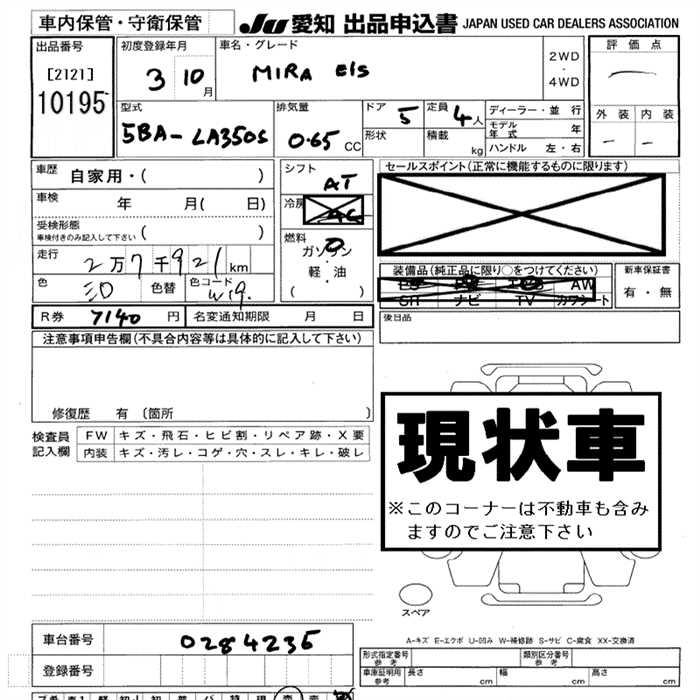 車内保管・守衛保管
JU 愛知 出品申込書 JAPAN USED CAR DEALERS ASSOCIATION
出品番号
[2121]
10195
初度登録年月
3 10 月
車名・グレード
MIRA e/s
2WD
・
4WD
評価点
外装 内装
型式
5BA-LA350S
排気量
0.65 CC
ドア
5
形状
定員
4人
積載
kg
ディーラー・並行
モデル年式 年
ハンドル 左・右
車歴
自家用・( )
車検
年 月( 日)
受検形態
車検付きのみ記入して下さい
( )
走行
2万7千921km
色
色替
色コード
W19
シフト
AT
冷房
AC
燃料
ガソリン
軽・油
( )
セールスポイント(正常に機能するものに限ります)
装備品(純正品に限り○をつけてください)
AW
SR ナビ TV カワシート
新車保証書
有・無
R券 7140 円
名変通知期限 月 日
後日品
注意事項申告欄(不具合内容等は具体的に記入して下さい)
修復歴 有 〔箇所 〕
検査員
記入欄
FW キズ・飛石・ヒビ割・リペア跡・X要
内装 キズ・汚レ・コゲ・穴・スレ・キレ・破レ
現状車
※このコーナーは不動車も含み
ますのでご注意下さい
スペア
A-キズ E-エクボ U-凹み W-補修跡 S-サビ C-腐食 XX-交換済
車台番号
0284235
登録番号
形式指定番号
参考
類別区分番号
参考
車庫証明用
参考
長さ cm
幅 cm
高さ cm